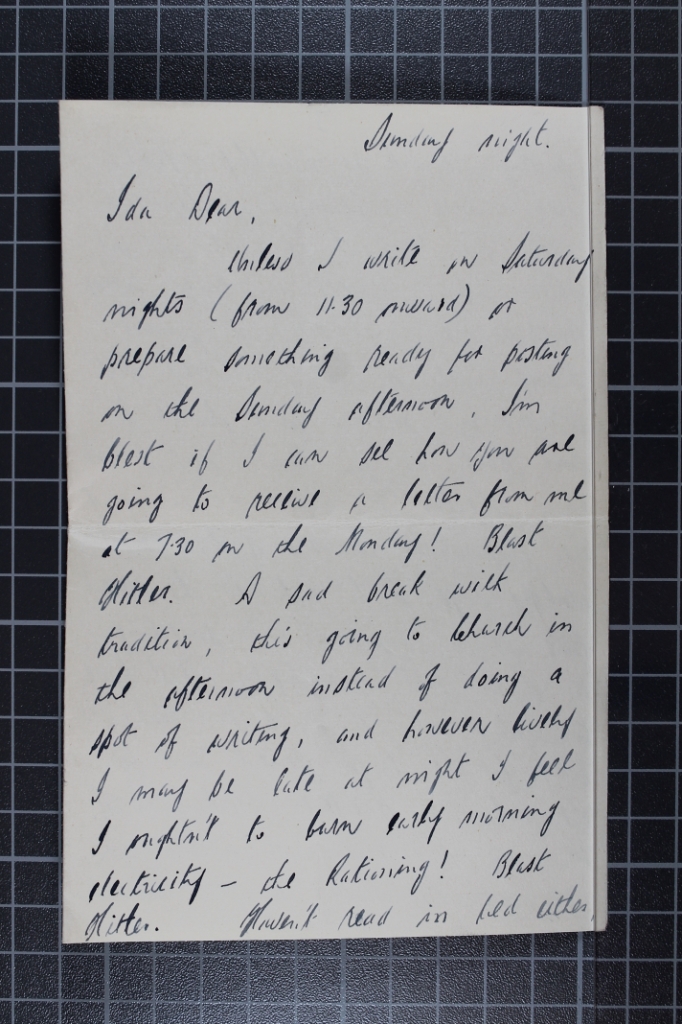 Sunday night.
Ida Dear,
Unless I write on Saturday
nights (from 11.30 onward) or
prepare something ready for posting
on the Sunday afternoon, I'm
blest if I can see how you are
going to receive a letter from me
at 7.30 on the Monday! Blast
Hitler. A sad break with
tradition, this going to Church in
the afternoon instead of doing a
spot of writing, and however lively
I may be late at night I feel
I oughtn't to burn early morning
electricity – the Rationing! Blast
Hitler. Haven't read in bed either,